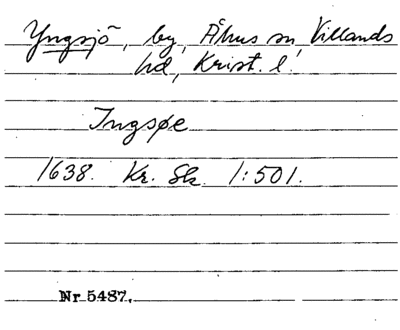 Yngsjö, by, Åhus sn, Villands
hd, Krist. l.
Ingsøe
1638. Kr. Sk. 1:501.
Nr 5487.